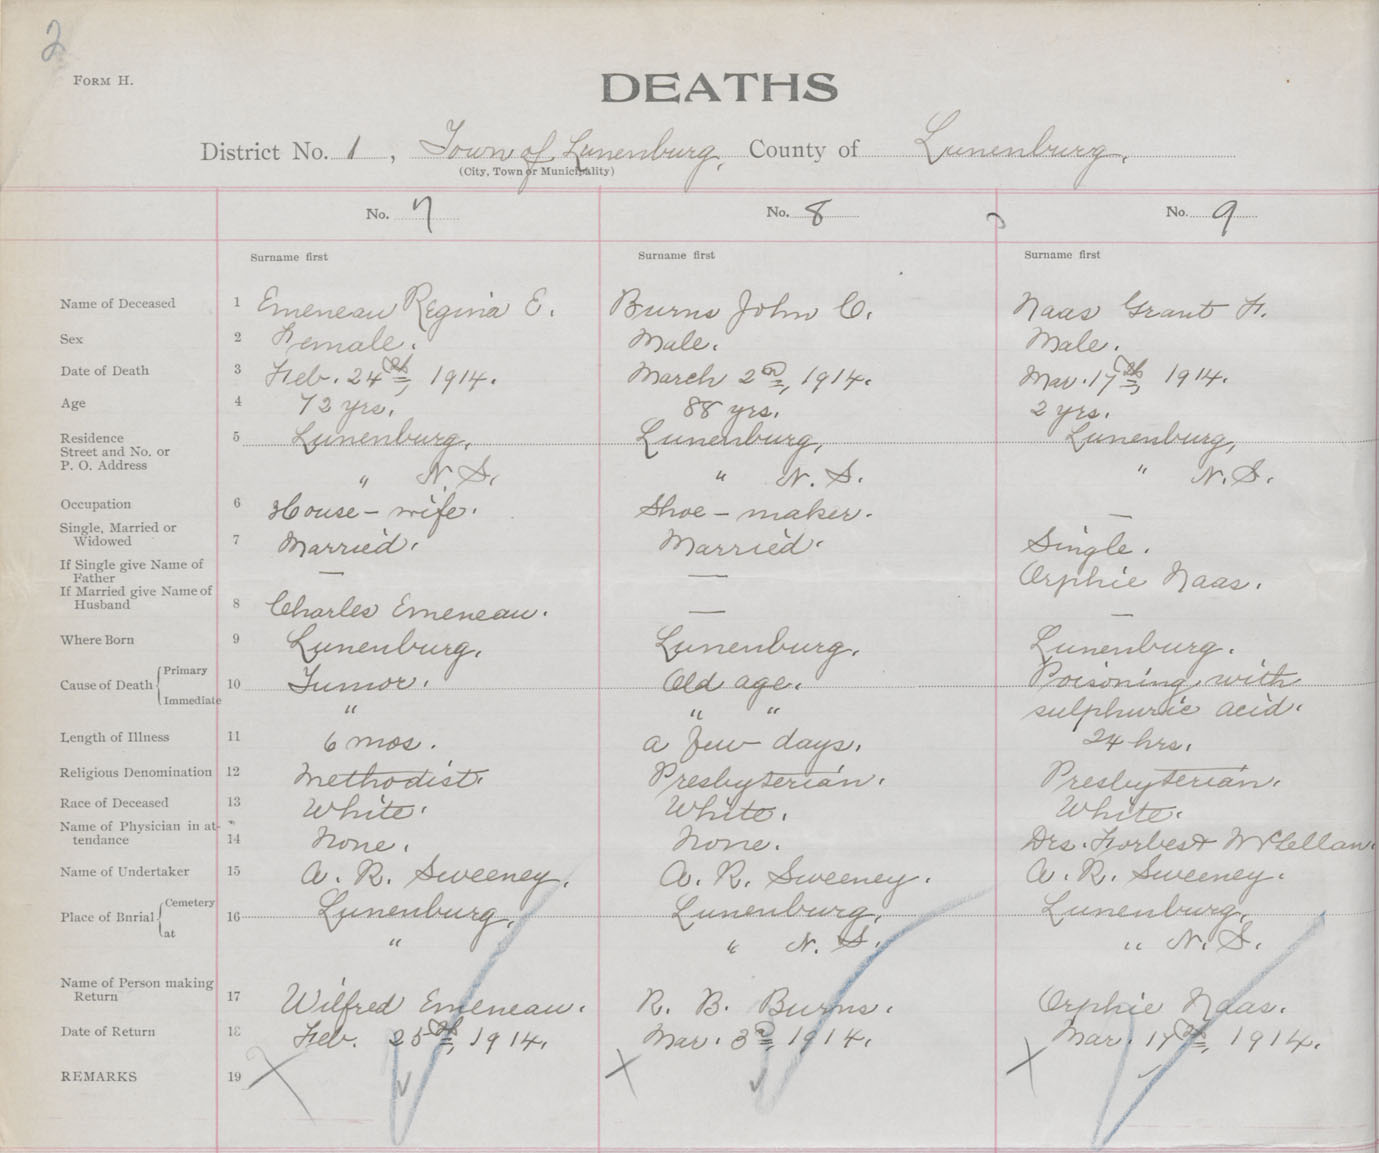 2
FORM H.
DEATHS
District No. 1, Town of Lunenburg, County of Lunenburg.
(City, Town or Municipality)
No. 7 No. 8 No. 9
Surname first Surname first Surname first
Name of Deceased 1 Emeneau Regina E. Burns John C. Naas Grant F.
Sex 2 Female. Male. Male.
Date of Death 3 Feb. 24th, 1914. March 2n, 1914. Mar. 17th, 1914.
Age 4 72 yrs. 88 yrs. 2 yrs.
Residence 5 Lunenburg, Lunenburg, Lunenburg,
Street and No. or
P. O. Address " N. S. " N. S. " N. S.
Occupation 6 House-wife. Shoe-maker. —
Single, Married or
Widowed 7 Married. Married. Single.
If Single give Name of
Father — — Orphie Naas.
If Married give Name of
Husband 8 Charles Emeneau. — —
Where Born 9 Lunenburg. Lunenburg. Lunenburg.
Cause of Death { Primary 10 Tumor. Old age. Poisoning with
Immediate " " " sulphuric acid.
Length of Illness 11 6 mos. a few days. 24 hrs.
Religious Denomination 12 Methodist Presbyterian. Presbyterian.
Race of Deceased 13 White. White. White.
Name of Physician in at-
tendance 14 None. None. Drs. Forbes & McLellan.
Name of Undertaker 15 A. R. Sweeney. A. R. Sweeney. A. R. Sweeney.
Place of Burial { Cemetery 16 Lunenburg, Lunenburg, Lunenburg,
at " " N. S. " N. S.
Name of Person making
Return 17 Wilfred Emeneau. R. B. Burns. Orphie Naas.
Date of Return 18 Feb. 25th, 1914. Mar. 3d, 1914. Mar. 17th, 1914.
REMARKS 19